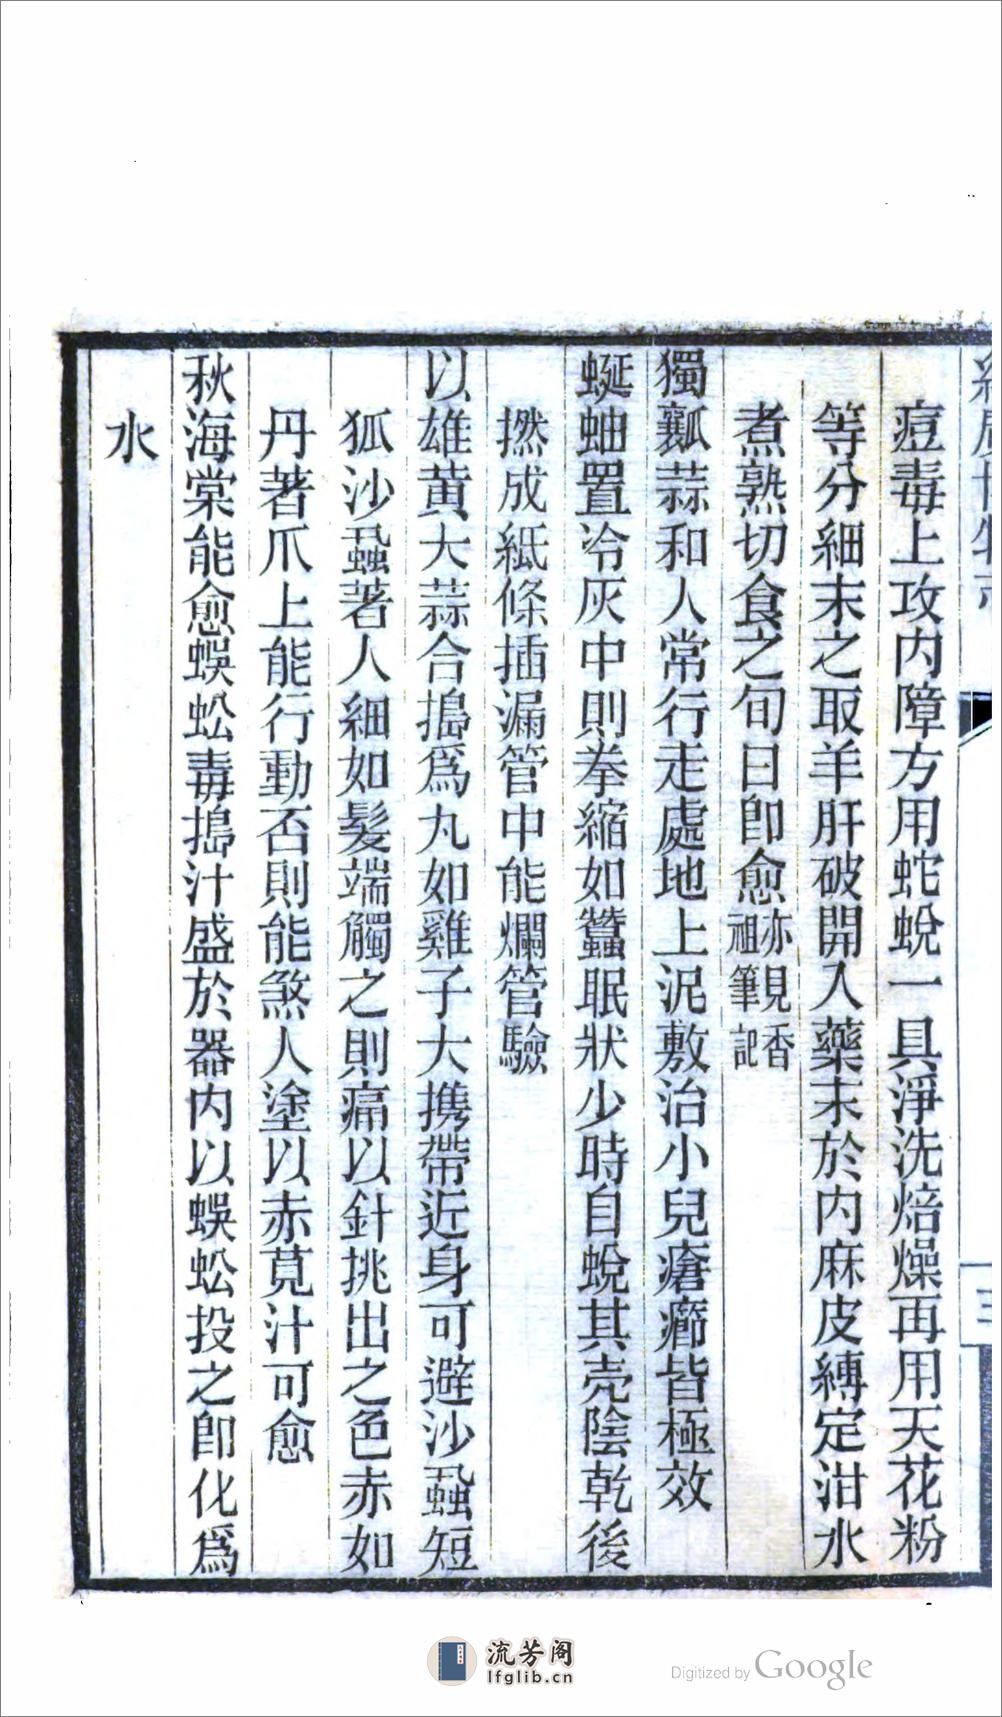 痘毒上攻內障方用蛇蛻一具淨洗焙燥再用天花粉
等分細末之取羊肝破開入藥末於內麻皮縛定泔水
煮熟切食之旬日卽愈亦見香祖筆記
獨瓤蒜和人常行走處地上泥敷治小兒瘡癤皆極效
蜒蚰置冷灰中則拳縮如蠶眠狀少時自蛻其壳陰乾後
撚成紙條插漏管中能爛管驗
以雄黄大蒜合搗爲丸如雞子大携帶近身可避沙蝨短
狐沙蝨著人細如髮端觸之則痛以針挑出之色赤如
丹著爪上能行動否則能煞人塗以赤莧汁可愈
秋海棠能愈蜈蚣毒搗汁盛於器內以蜈蚣投之卽化爲
水
流芳阁
lfglib.cn
Digitized by Google